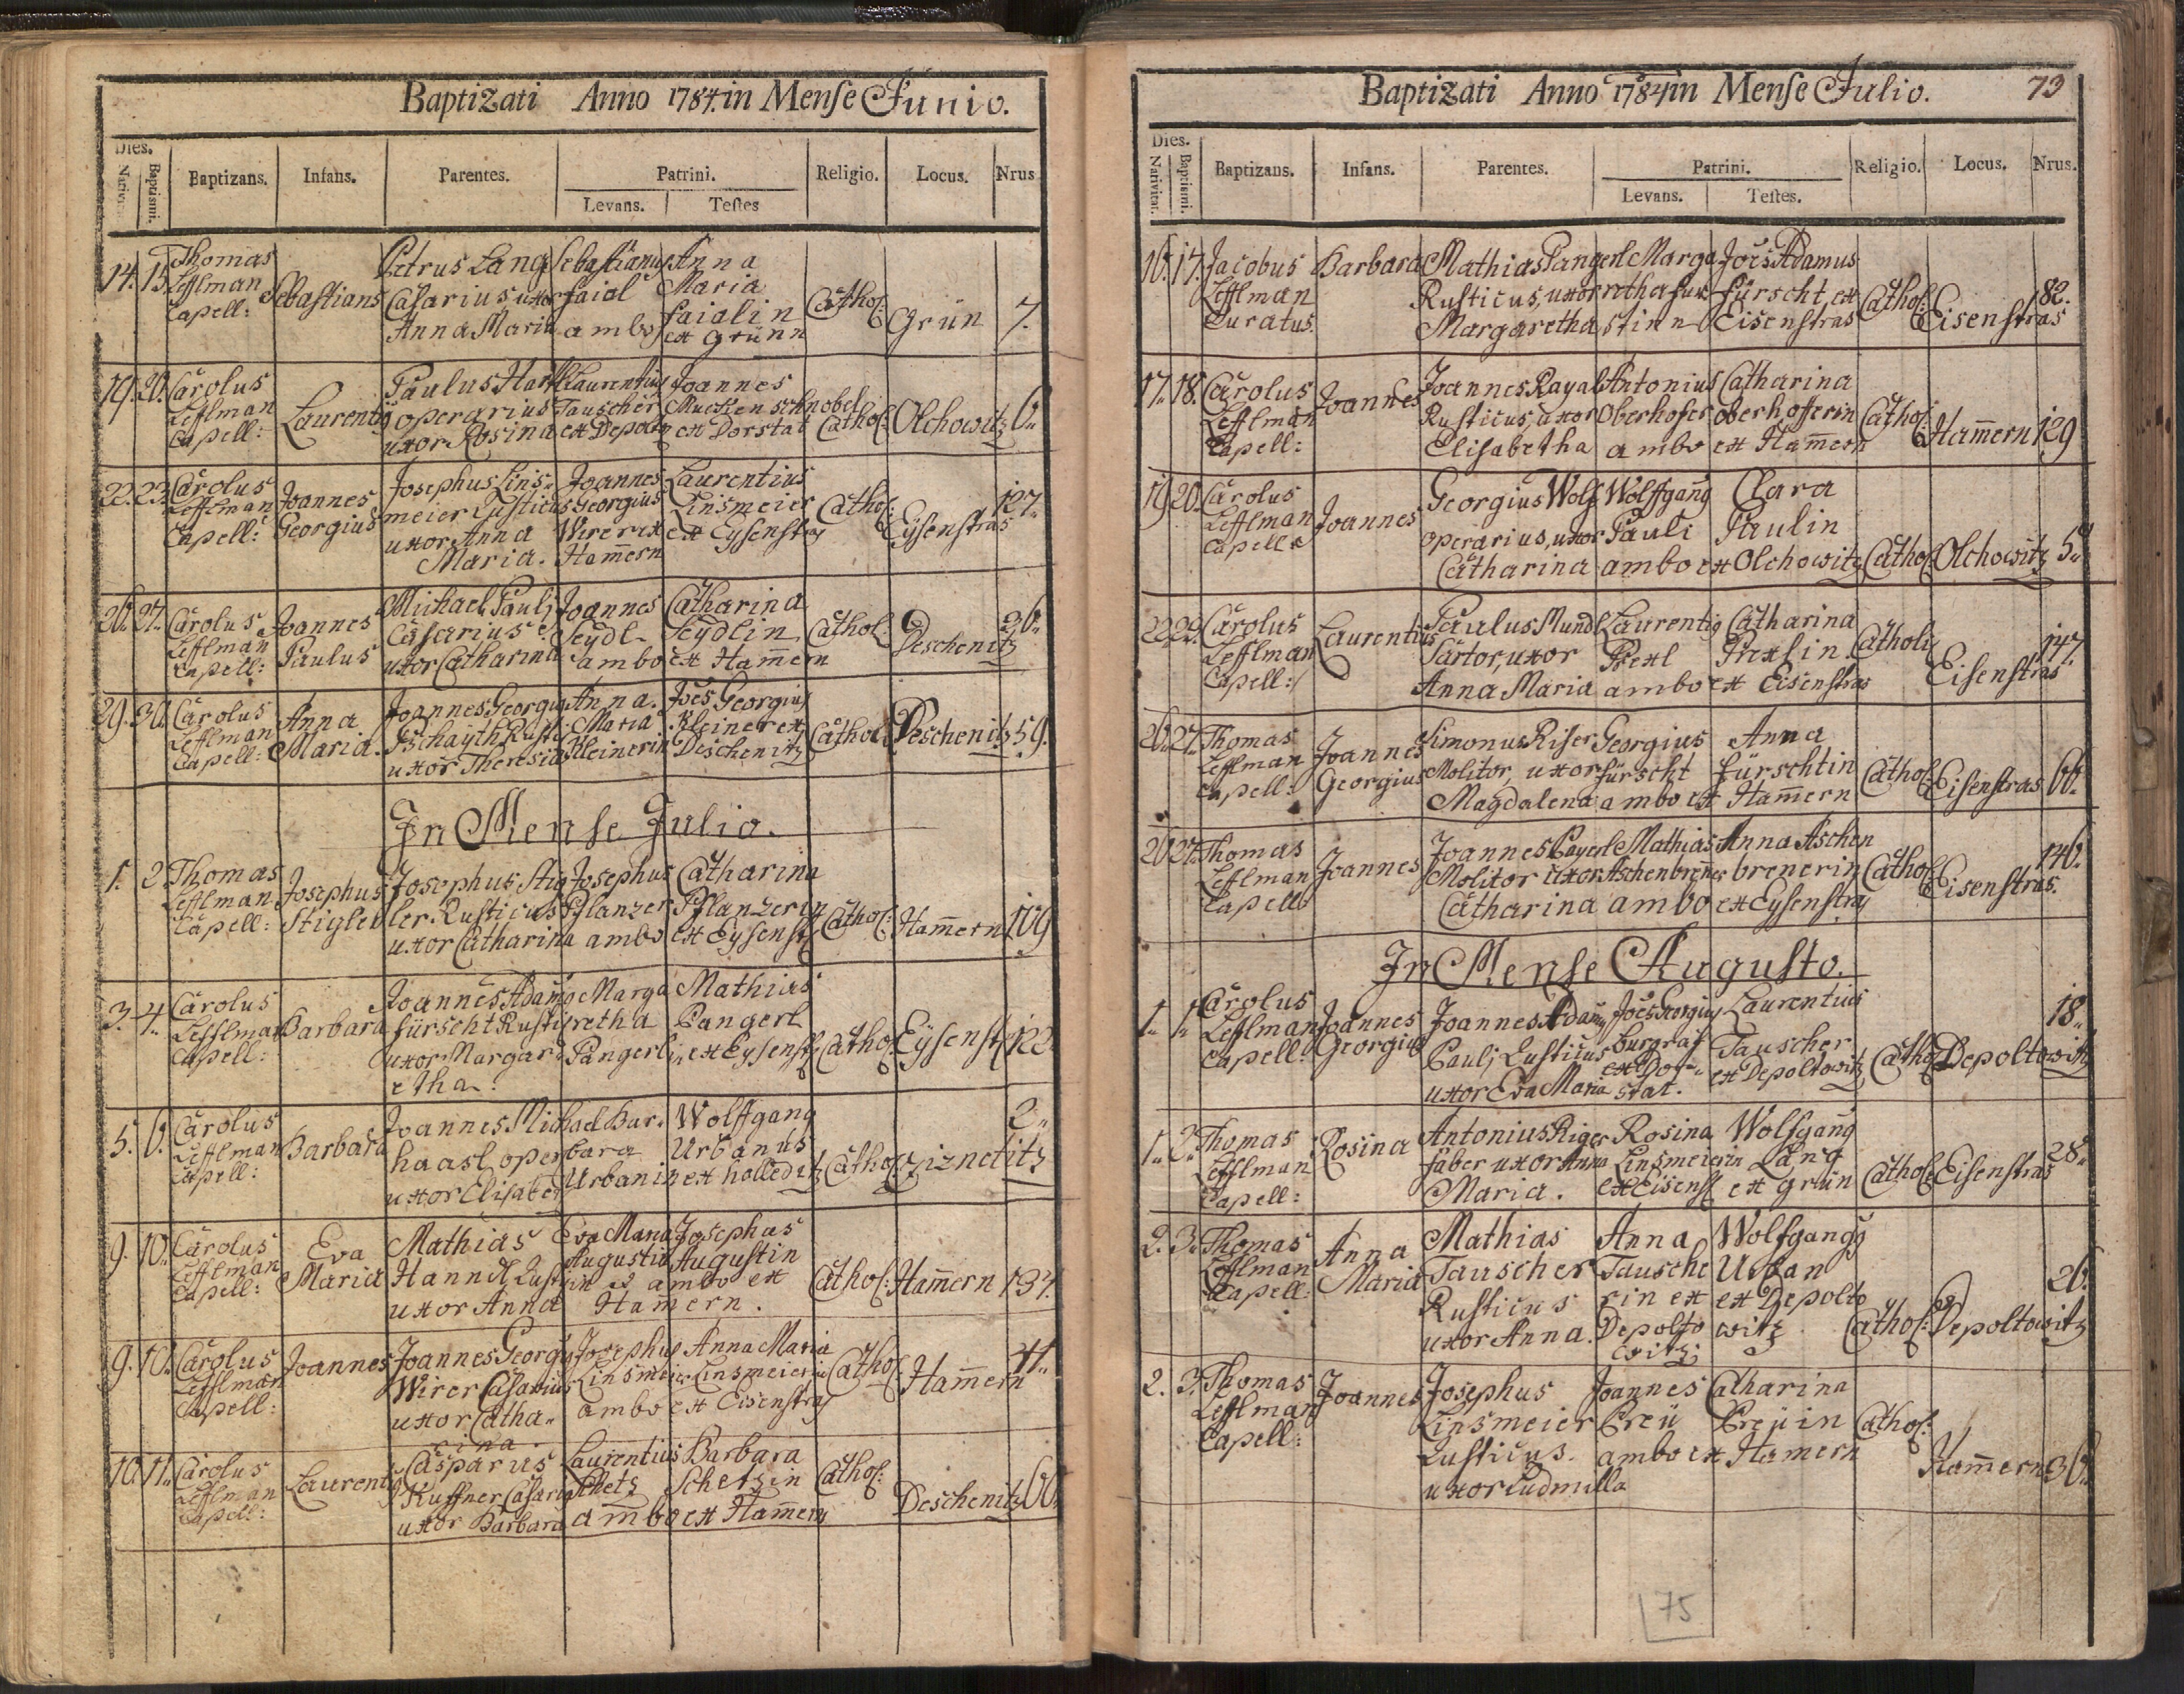 Baptizati Anno 1784. in Mense Junio.
Dies.
Nativit.
Baptismi.
Baptizans.
Infans.
Parentes.
Patrini.
Levans.
Testes
Religio.
Locus.
Nrus
14. 15. Thomas Lefflman Capell: Sebastians Petrus Lang Casarius uxor Anna Maria Sebastianus faial ambo Anna Maria faialin ex Grünn Cathol: Grün 7.
19. 20. Carolus Lefflman Capell: Laurentig Paulus operarius uxor Rosina Laurentius Tauscher ex Joannes Mucken schnobel ex Dorstat Cathol: Olchowitz 6.
22. 23. Carolus Lefflman Capell: Joannes Georgius Josephus Lins„ meier Rusticus uxor Anna Maria. Joannes Georgius Wirer ex Ham̄ern Laurentius Linsmeier ex Eysenstras Cathol: Eysenstras 127.
26. 27. Carolus Lefflman Capell: Joannes Paulus Michael Paulj Casarius uxor Catharina Joannes Seydl ambo Catharina Seydlin ex Ham̄ern Cathol: Deschenitz 26.
29. 30. Carolus Lefflman Capell: Anna Maria. Joannes Georgig uxor Theresia Anna Maria Kleinerin Joēs Georgius Kleiner ex Deschenitz Cathol: Deschenitz 59.
In Mense Julio.
1. 2. Thomas Lefflman Capell: Josephus Stigler Josephus Stig ler Rusticus uxor Catharina Josephus Pflanzer ambo Catharina Pflanzerin ex Eysenst Cathol: Ham̄ern 109
3. 4. Carolus Lefflman Capell: Barbara Joannes Adamg fürscht Rusti uxor Margar etha. Marga retha Pangerlin Mathias Pangerl ex Eysenst Cathol: Eysenst 122
5. 6. Carolus Lefflman Capell: Barbara Joannes Michael haasl oper uxor Elisabe Bar„ bara Urbanin Wolffgang Urbanus ex holleditz Cathol: Ziznetitz 2.
9. 10. Carolus Lefflman Capell: Eva Maria Mathias Hannd Rust uxor Anna Eva Maria Augustin in Josephus Augustin ambo ex Ham̄ern. Cathol: Ham̄ern 137.
9. 10. Carolus Lefflman Capell: Joannes Joannes Georgg Wirer Casarius uxor Catha„ rina Josephus Linsmeier ambo Anna Maria Linsmeierin ex Eisenstras Cathol: Ham̄ern 41.
10. 11. Carolus Lefflman Capell: Laurentig Casparus Kuffner Casarig uxor Barbara Laurentius Schetz ambo Barbara Schetzin ex Ham̄ern Cathol: Deschenitz 60.
Baptizati Anno 1784 in Mense Julio. 73
Dies.
Nativitat.
Baptismi.
Baptizans.
Infans.
Parentes.
Patrini.
Levans.
Testes.
Religio.
Locus.
Nrus.
16. 17. Jacobus Lefflman Curatus. Barbara Mathias Pangerl Rusticus, uxor Margaretha Marga retha fur stinn Joēs Adamus fürscht ex Eisenstras Cathol: Eisenstras 82.
17. 18. Carolus Lefflman Capell: Joannes Joannes Rayal Rusticus, uxor Elisabetha Antonius Oberhofer ambo Catharina oberhoferin ex Ham̄ern Cathol: Ham̄ern 129
19. 20. Carolus Lefflman Capell: Joannes Georgius Wolf operarius, uxor Catharina Wolffgang Pauli ambo Clara Paulin ex Olchowitz Cathol: Olchowitz 5.
22. Carolus Lefflman Capell: Laurentius Paulus Mundl Sartor, uxor Anna Maria Laurentig Prexl ambo Catharina Prexlin ex Eisenstras Cathol: Eisenstras 147.
26. 27. Thomas Lefflman Capell: Joannes Georgius Simonus Riser Molitor, uxor Magdalena Georgius fürscht ambo Anna fürschtin ex Ham̄ern Cathol: Eisenstras 66.
26. 27. Thomas Lefflman Capell Joannes Joannes Payerl Molitor uxor Catharina Mathias Aschenbrener ambo Anna Aschen brenerin ex Eysenstras Cathol: Eisenstras. 146.
In Mense Augusto.
1. 1. Carolus Lefflman Capell: Joannes Georgius Joannes Adamg Paulj Rusticus uxor Eva Maria Joēs Georgius Burgraf ex Dor„ stat. Laurentius Tauscher ex Depoltowitz Cathol: Depoltowitz 18.
1. 2. Thomas Lefflman Capell: Rosina Antonius Riger faber uxor Anna Maria. Rosina Linsmeierin ex Eisenst Wolfgang Lang ex Grün Cathol: Eisenstras 28.
2. 3. Thomas Lefflman Capell: Anna Maria Mathias Tauscher Rusticus uxor Anna. Anna Tausche rin ex Depolto witz Wolfgangg Urban ex Depolto witz Cathol: Depoltowitz 26.
2. 3. Thomas Lefflman Capell: Joannes Josephus Linsmeier Rusticus. uxor Ludmilla Joannes Preü ambo Catharina Preüin ex Hamern Cathol: Ham̄ern 36.
75